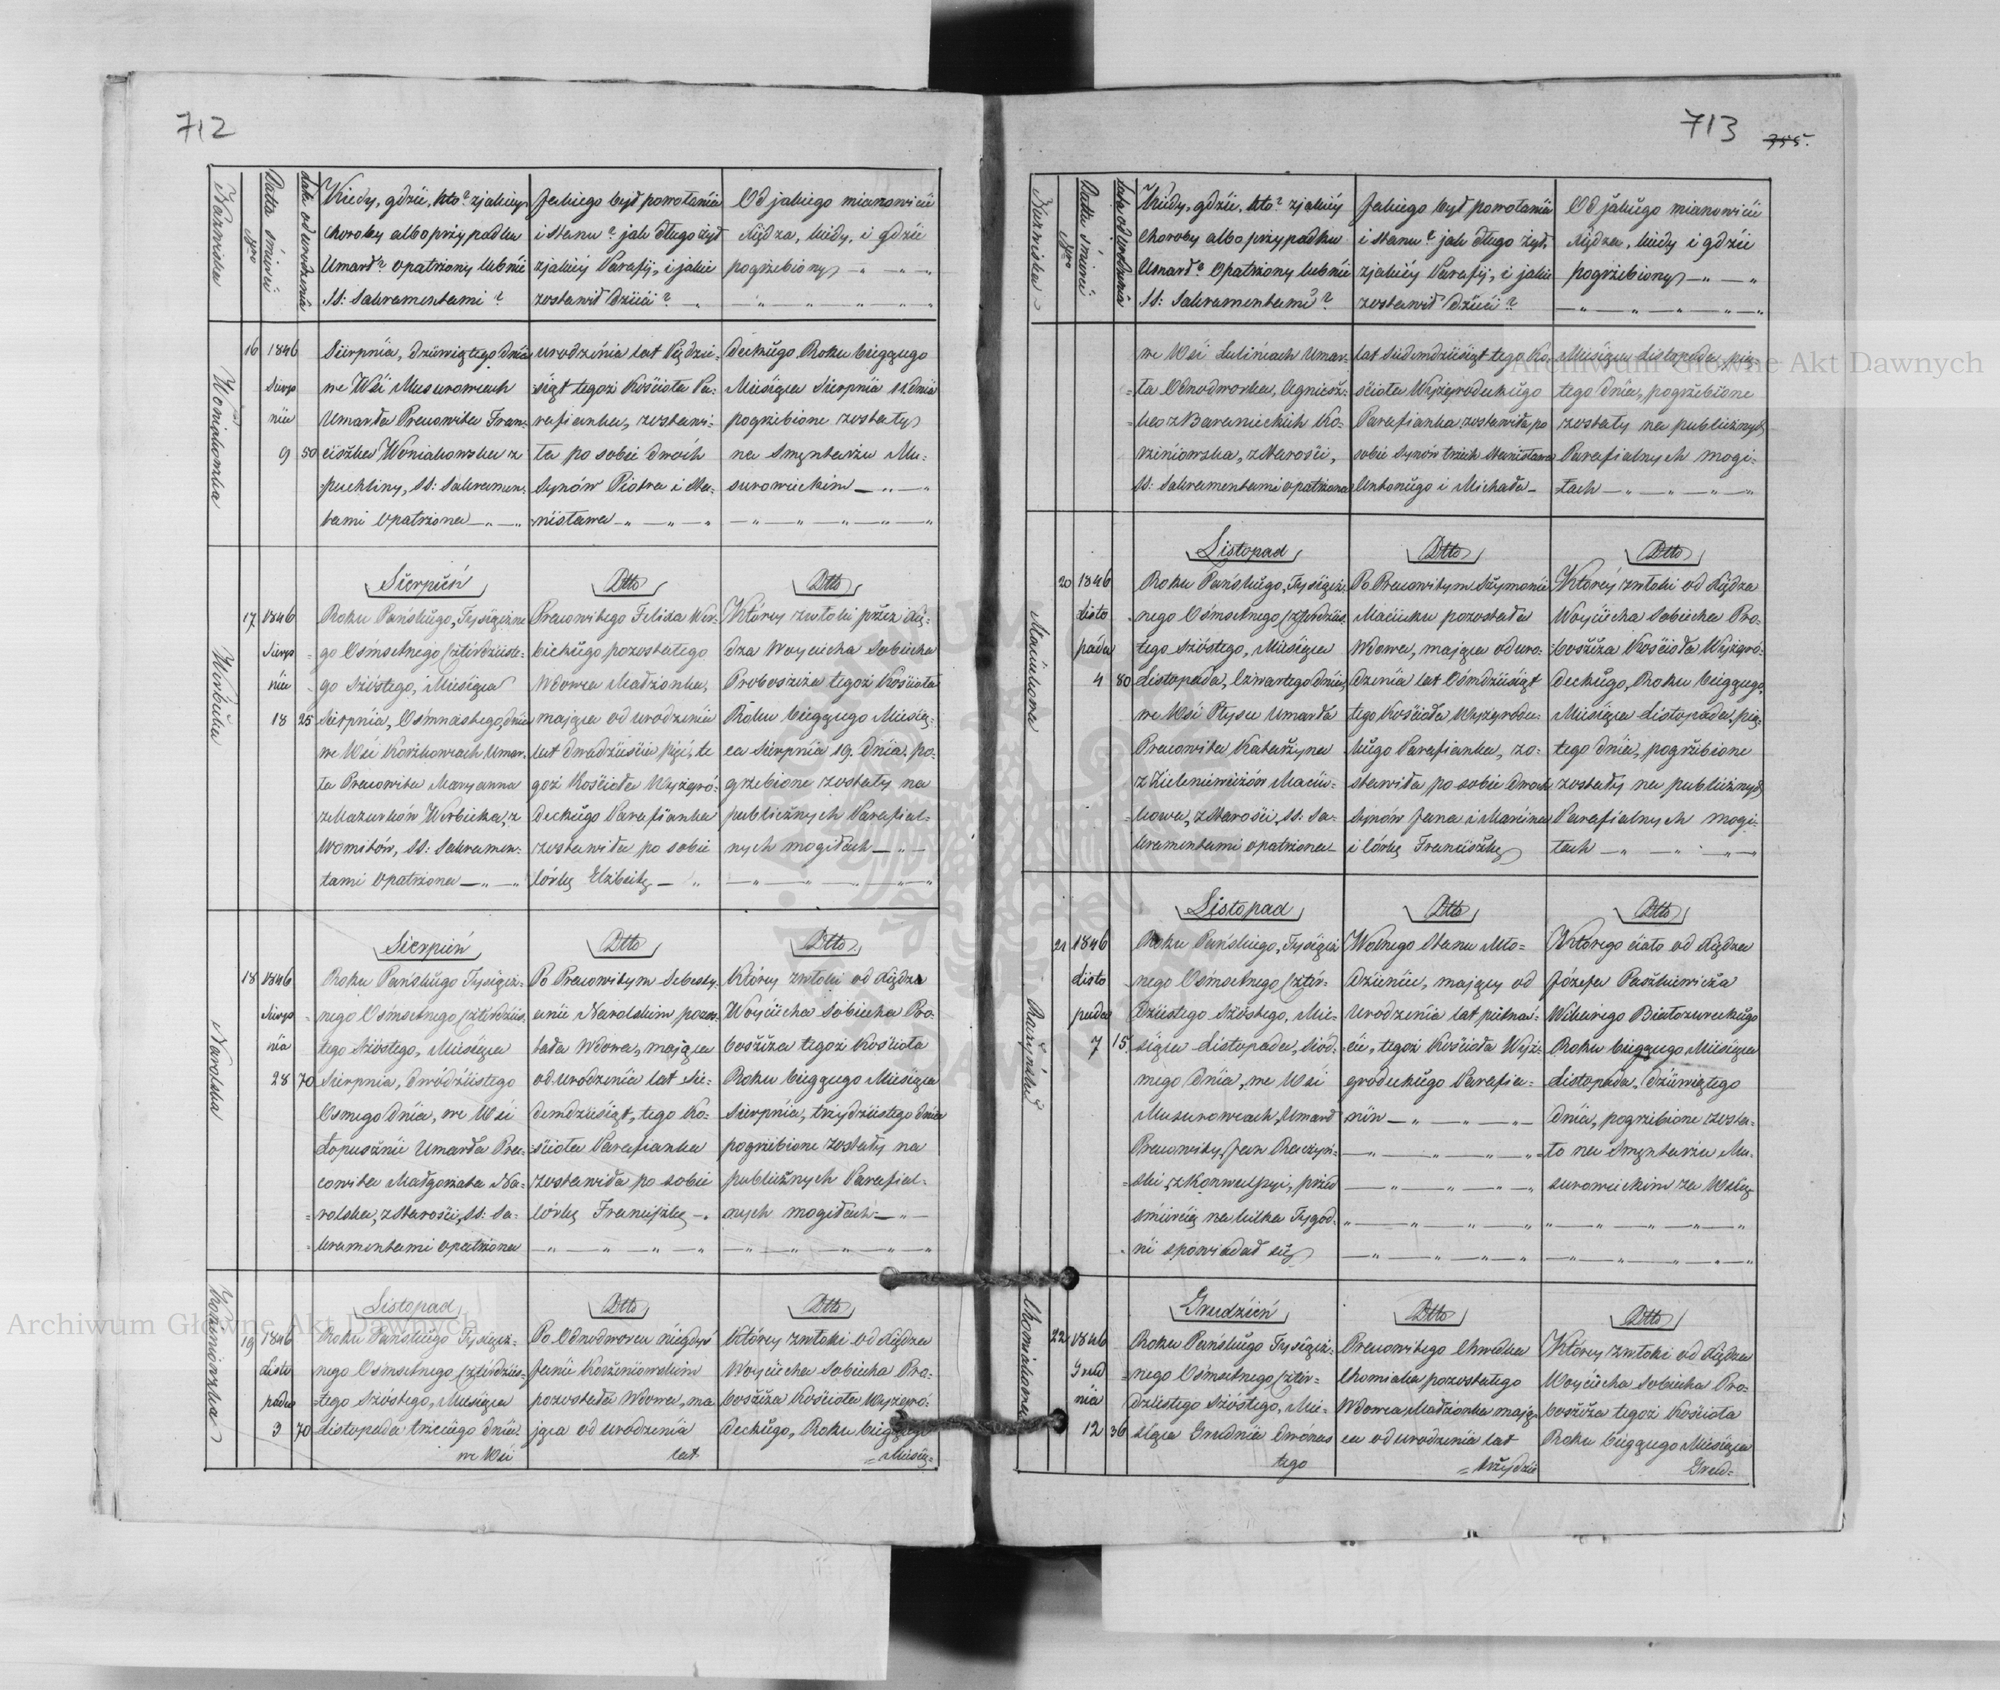 712
Nazwiska
Nro
Datta śmierci
Lata od urodzenia
Kiedy, gdzie, kto? z jakiey
choroby albo przypadku
Umarł? opatrzony lub nie
SS: Sakramentami?
Jakiego był powołania
i stanu? jak długo żył
z jakiey Parafij, i jakie
zostawił dzieci?
Od jakiego mianowicie
Xiędza, kiedy, i gdzie
pogrzebiony
Woniakowska
16
1846
Sierp
nia
9
50
Sierpnia, dziewiątego dnia
we Wsi Musurowcach
Umarła Pracowita Fran-
ciszka Woniakowska z
puchliny, SS: Sakramen-
tami opatrzona
urodzenia lat Pięćdzie-
siąt tegoż Kościoła Pa-
rafianka, zostawi-
ła po sobie dwóch
Synów Piotra i Sta-
nisława
deckiego Roku bieżącego
Miesiąca Sierpnia 11 dnia
pogrzebione zostały
na Smętarzu Mu-
surowieckim
Werbicka
17
1846
Sierp
nia
18
25
Sierpień
Roku Pańskiego, Tysiączne
go Osmsetnego Czterdzieste-
go Szóstego, Miesiąca
Sierpnia, Osmnastego, dnia
we Wsi Korżkowcach Umar-
ła Pracowita Maryanna
z Mazurków Werbicka, z
Womitów, SS: Sakramen-
tami opatrzona
Dtto
Pracowitego Felixa Wer-
bickiego pozostałego
Wdowca Małżonka,
mająca od urodzenia
lat dwadzieścia pięć, te
goż Kościoła Wyżgró-
deckiego Parafianka
zostawiła po sobie
Córkę Elżbietę
Dtto
Którey zwłoki przez Xię-
dza Woyciecha Sobiecka
Proboszcza tegoż Kościoła
Roku bieżącego Miesią-
ca Sierpnia 19. dnia po-
grzebione zostały na
publicznych Parafial-
nych mogiłach
Narolska
18
1846
Sierp
nia
28
70
Sierpień
Roku Pańskiego Tysiącz-
nego Osmsetnego Czterdzies-
tego Szóstego, Miesiąca
Sierpnia, dwódziestego
Osmego dnia, we Wsi
Łopusznie Umarła Pra-
cowita Małgorzata Na-
rolska, z starości, SS: Sa-
kramentami opatrzona
Dtto
Po Pracowitym Sebesty-
anie Narolskim pozos-
tała Wdowa, mająca
od urodzenia lat Sie-
demdziesiąt, tego Ko-
ścioła Parafianka
zostawiła po sobie
Córkę Franciszkę
Dtto
Którey zwłoki od Xiędza
Woyciecha Sobiecka Pro-
boszcza tegoż Kościoła
Roku bieżącego Miesiąca
Sierpnia, trzydziestego dnia
pogrzebione zostały na
publicznych Parafial-
nych mogiłach
Korzeniowska
19
1846
Listo
pada
3
70
Listopad
Roku Pańskiego Tysiącz-
nego Osmsetnego Czterdzies-
tego Szóstego, Miesiąca
Listopada trzeciego dnia
we Wsi
Dtto
Po Odnodworcu niegdyś
Janie Korzeniowskim
pozostała Wdowa, ma
jąca od urodzenia
lat
Dtto
Którey zwłoki od Xiędza
Woyciecha Sobiecka Pro-
boszcza Kościoła Wyżgró-
deckiego, Roku bieżącego
Miesią-
713
755.
Nazwiska
Nro
Datta śmierci
Lata od urodzenia
Kiedy, gdzie, kto? z jakiey
choroby albo przypadku
Umarł? opatrzony lub nie
SS: Sakramentami?
Jakiego był powołania
i stanu? jak długo żył,
z jakiey Parafij, i jakie
zostawił dzieci?
Od jakiego mianowicie
Xiędza, kiedy i gdzie
pogrzebiony
we Wsi Lulincach Umar-
ła Odnodworka, Agniesz-
ka z Baranieckich Ko-
rzeniowska, z starości,
SS: Sakramentami opatrzona
lat siedemdziesiąt tego Ko-
ścioła Wyżgrodeckiego
Parafianka zostawiła po
sobie Synów trzech Stanisława
Antoniego i Michała
Miesiąca Listopada pią-
tego dnia, pogrzebione
zostały na publicznych
Parafialnych mogi-
łach
Maciukowa
20
1846
Listo
pada
4
80
Listopad
Roku Pańskiego, Tysiącz-
nego Osmsetnego Czterdzies-
tego Szóstego, Miesiąca
Listopada, Czwartego dnia,
we Wsi Ptysu Umarła
Pracowita Katarzyna
z Zieleniewiczów Maciu-
kowa, z starości, SS: Sa-
kramentami opatrzona
Dtto
Po Pracowitym Szymonie
Maciuku pozostała
Wdowa, mająca od uro-
dzenia lat Osmdziesiąt
tego Kościoła Wyżgrodec-
kiego Parafianka, zo-
stawiła po sobie dwóch
Synów Jana i Marcina
i Córkę Franciszkę
Dtto
Którey zwłoki od Xiędza
Woyciecha Sobiecka Pro-
boszcza Kościoła Wyżgró-
deckiego, Roku bieżącego,
Miesiąca Listopada pią-
tego dnia, pogrzebione
zostały na publicznych
Parafialnych mogi-
łach
Raczyński
21
1846
Listo
pada
7
15
Listopad
Roku Pańskiego, Tysiącz
nego Osmsetnego Czter-
dziestego Szóstego, Mie-
siąca Listopada, siód-
mego dnia, we Wsi
Musurowcach, Umarł
Pracowity Jan Raczyń-
ski, z Konwulsyi, przed
śmiercią na kilka Tygod-
ni spowiadał się
Dtto
Wolnego Stanu Mło-
dzieniec, mający od
Urodzenia lat piętna-
ście, tegoż Kościoła Wyż-
grodeckiego Parafia-
nin
Dtto
Którego ciało od Xiędza
Józefa Paszkiewicza
Wikarego Białozureckiego
Roku bieżącego Miesiąca
Listopada, Dziewiątego
dnia, pogrzebione zosta-
ło na Smętarzu Mu-
surowieckim za Wsią
Chomiakowa
22
1846
Grud
nia
12
36
Grudzień
Roku Pańskiego Tysiącz-
nego Osmsetnego Czter-
dziestego Szóstego, Mie-
siąca Grudnia dwónas
tego
Dtto
Pracowitego Chwedka
Chomiaka pozostałego
Wdowca, Małżonka mają-
ca od urodzenia lat
trzydzie
Dtto
Którey zwłoki od Xiędza
Woyciecha Sobiecka Pro-
boszcza tegoż Kościoła
Roku bieżącego Miesiąca
Grud-
Archiwum Główne Akt Dawnych
Archiwum Główne Akt Dawnych